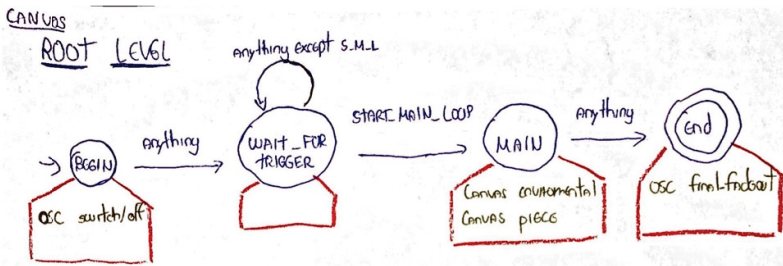 CANVAS
ROOT LEVEL
Anything except S_M_L
BEGIN
Anything
WAIT_FOR
TRIGGER
START_MAIN_LOOP
MAIN
Anything
End
OSC switch/off
Canvas enviromental
Canvas piece
OSC final-fadeout